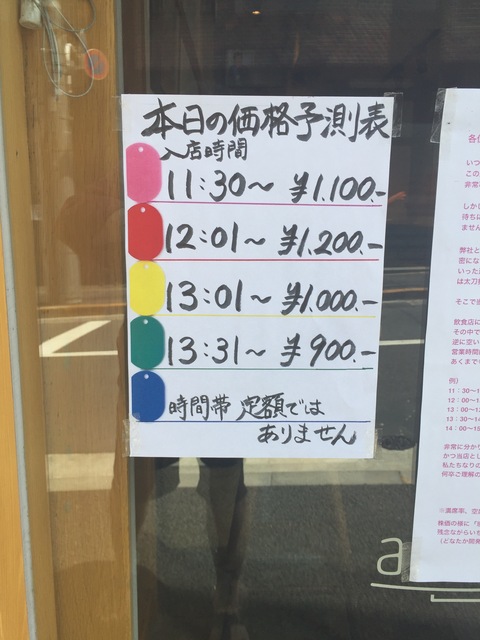 本日の価格予測表
入店時間
11:30〜 ¥1.100.-
12:01〜 ¥1.200.-
13:01〜 ¥1.000.-
13:31〜 ¥900.-
時間帯 定額では
ありません
いつ
この
非常
しかし
待ちに
ません
弊社と
密にな
いった
は太刀
そこで
飲食店に
その中で
逆に空い
営業時間
あくまで
例）
11：30〜1
12：00〜1
13：00〜1
13：30〜14
14：00〜15
非常に分か
かつ当店とし
私たちなりの
何卒ご理解の
※満席率、空
株価の様に「
残念ながらいち
（どなたか開発
a